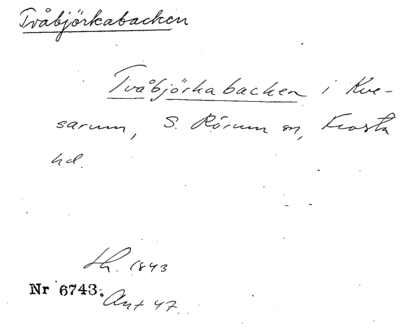 Tvåbjörkabacken
Tvåbjörkabacken i Kve-
sarum, S. Rörum sn, Frosta
hd.
Lh. 1843
Nr 6743. Ant 47.